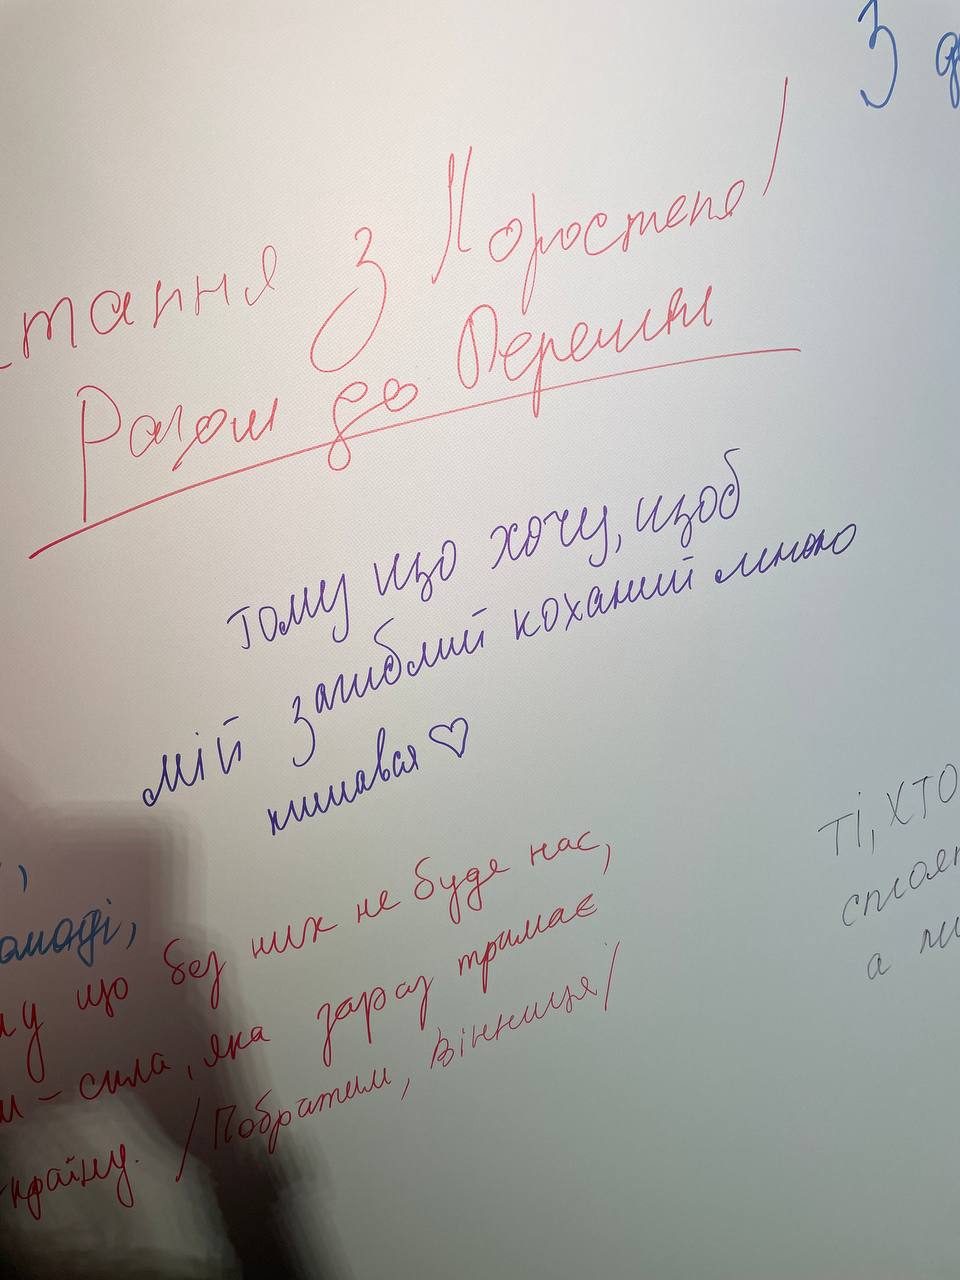 З
тання з Коростеня!
Разом до Перемоги
тому що хочу, щоб
мій загиблий коханий мною
пишався ♡
Ті, хто
,
омаді,
що без них не буде нас,
сила, яка зараз тримає
країну. /Побратим, Вінниця/
а